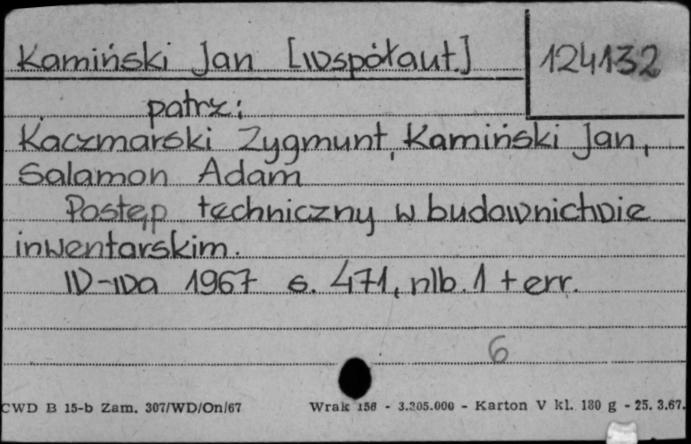 Kamiński Jan [współaut.]
124132
patrz:
Kaczmarski Zygmunt, Kamiński Jan,
Salamon Adam
Postęp techniczny w budownictwie
inwentarskim.
W-wa 1967 s. 471, nlb. 1 + err.
6
CWD B 15-b Zam. 307/WD/On/67
Wrak 156 - 3.205.000 - Karton V kl. 180 g - 25. 3.67.